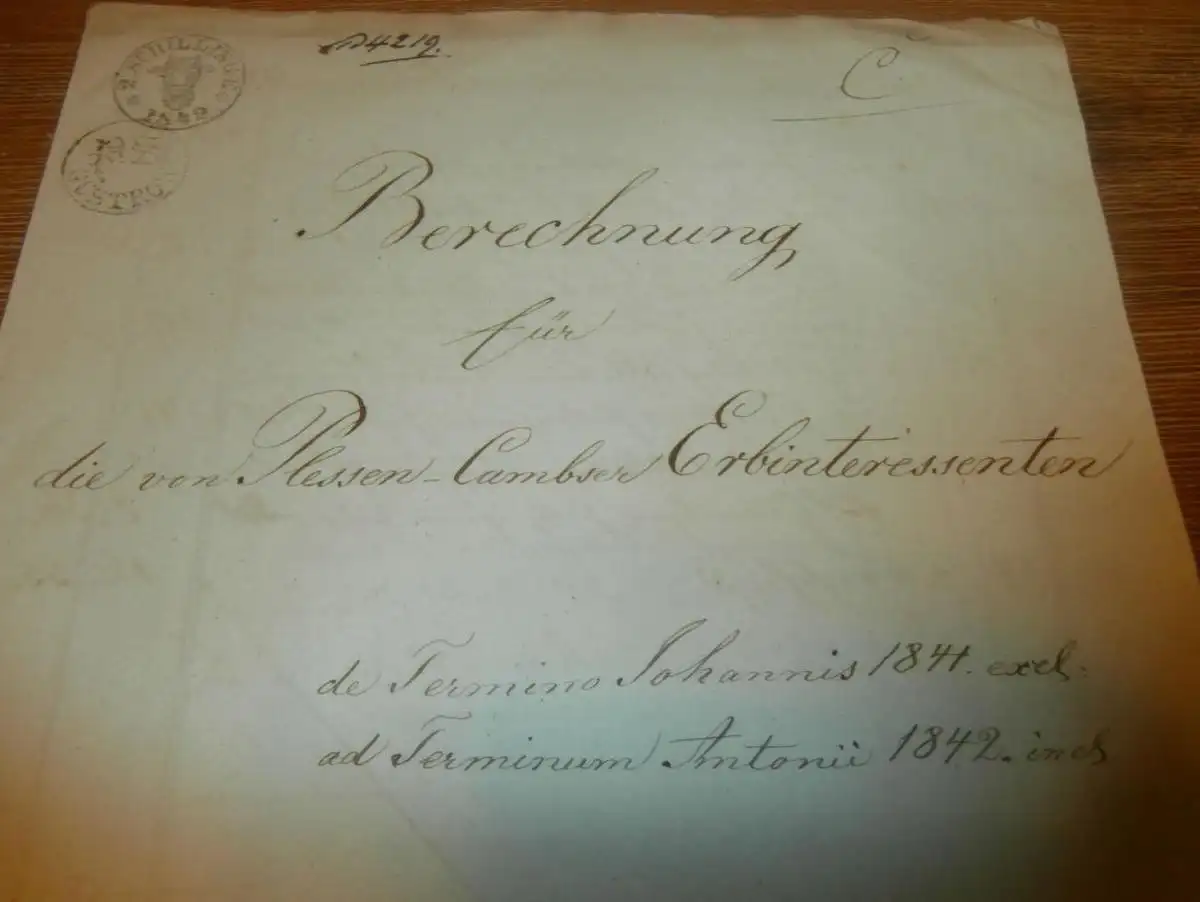 2 SCHILLINGE
1842
4219.
C
Berechnung
für
die von Plessen-Cambser Erbinteressenten
de Termino Johannis 1841. excl.
ad Terminum Antonii 1842. incl